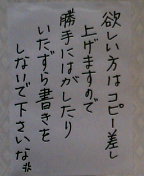 欲しい方はコピー差し
上げますので
勝手にはがしたり
いたずら書きを
しないで下さいな